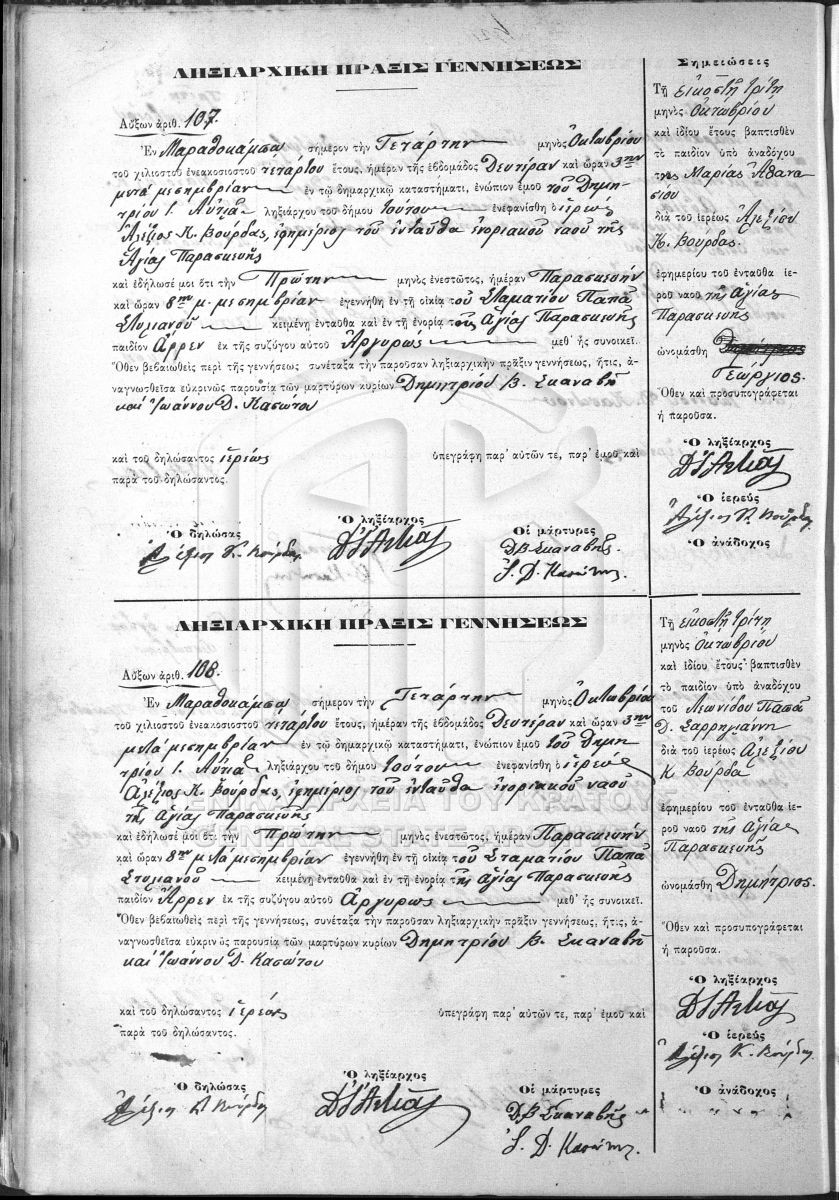 ΛΗΞΙΑΡΧΙΚΗ ΠΡΑΞΙΣ ΓΕΝΝΗΣΕΩΣ
Αὔξων ἀριθ. 107.
Ἐν Μαραθοκάμπῳ σήμερον τὴν Τετάρτην μηνὸς Ὀκτωβρίου
τοῦ χιλιοστοῦ ἐνεακοσιοστοῦ τετάρτου ἔτους, ἡμέραν τῆς ἑβδομάδος Δευτέραν καὶ ὥραν 3ην
μετὰ μεσημβρίαν ἐν τῷ δημαρχικῷ καταστήματι, ἐνώπιον ἐμοῦ τοῦ Δημη-
τρίου Ι. ληξιάρχου τοῦ δήμου τούτου ἐνεφανίσθη ὁ ἱερεὺς
Ἀλέξιος Κ. Βουρδας, ἐφημέριος τοῦ ἐνταῦθα ἐνοριακοῦ ναοῦ τῆς
Ἁγίας Παρασκευῆς
καὶ ἐδήλωσέ μοι ὅτι τὴν Πρώτην μηνὸς ἐνεστῶτος, ἡμέραν Παρασκευὴν
καὶ ὥραν 8ην μ. μεσημβρίαν ἐγεννήθη ἐν τῇ οἰκίᾳ τοῦ Σταματίου Παπᾶ
Στυλιανοῦ κειμένῃ ἐνταῦθα καὶ ἐν τῇ ἐνορίᾳ τῆς Ἁγίας Παρασκευῆς
παιδίον Ἄρρεν ἐκ τῆς συζύγου αὐτοῦ Ἀργυρῶς μεθ᾽ ἧς συνοικεῖ.
Ὅθεν βεβαιωθεὶς περὶ τῆς γεννήσεως συνέταξα τὴν παροῦσαν ληξιαρχικὴν πρᾶξιν γεννήσεως, ἥτις, ἀ-
ναγνωσθεῖσα εὐκρινῶς παρουσίᾳ τῶν μαρτύρων κυρίων Δημητρίου Β. Σκαναβῆ
καὶ Ἰωάννου Δ. Κασώτου
καὶ τοῦ δηλώσαντος ἱερέως ὑπεγράφη παρ᾽ αὐτῶν τε, παρ᾽ ἐμοῦ καὶ
παρὰ τοῦ δηλώσαντος.
Ὁ δηλώσας
Ἀλέξιος Κ. Βουρδας
Ὁ ληξίαρχος
Οἱ μάρτυρες
Δ.Β. Σκαναβῆς.
Ἰ. Δ. Κασώτης.
Σημειώσεις
Τῇ εἰκοστῇ τρίτῃ
μηνὸς Ὀκτωβρίου
καὶ ἰδίου ἔτους βαπτισθὲν
τὸ παιδίον ὑπὸ ἀναδόχου
τῆς Μαρίας Ἀθανα
σίου
διὰ τοῦ ἱερέως Ἀλεξίου
Κ. Βουρδα.
ἐφημερίου τοῦ ἐνταῦθα ἱε-
ροῦ ναοῦ τῆς Ἁγίας
Παρασκευῆς
ὠνομάσθη
Γεώργιος.
Ὅθεν καὶ προσυπογράφεται
ἡ παροῦσα.
Ὁ ληξίαρχος
Ὁ ἱερεύς
Ἀλέξιος Κ. Βουρδας
Ὁ ἀνάδοχος
ΛΗΞΙΑΡΧΙΚΗ ΠΡΑΞΙΣ ΓΕΝΝΗΣΕΩΣ
Αὔξων ἀριθ. 108.
Ἐν Μαραθοκάμπῳ σήμερον τὴν Τετάρτην μηνὸς Ὀκτωβρίου
τοῦ χιλιοστοῦ ἐνεακοσιοστοῦ τετάρτου ἔτους, ἡμέραν τῆς ἑβδομάδος Δευτέραν καὶ ὥραν 3ην
μετὰ μεσημβρίαν ἐν τῷ δημαρχικῷ καταστήματι, ἐνώπιον ἐμοῦ τοῦ Δημη-
τρίου Ι. ληξιάρχου τοῦ δήμου τούτου ἐνεφανίσθη ὁ ἱερεὺς
Ἀλέξιος Κ. Βουρδας, ἐφημέριος τοῦ ἐνταῦθα ἐνοριακοῦ ναοῦ
τῆς Ἁγίας Παρασκευῆς
καὶ ἐδήλωσέ μοι ὅτι τὴν Πρώτην μηνὸς ἐνεστῶτος, ἡμέραν Παρασκευὴν
καὶ ὥραν 8ην μετὰ μεσημβρίαν ἐγεννήθη ἐν τῇ οἰκίᾳ τοῦ Σταματίου Παπᾶ
Στυλιανοῦ κειμένῃ ἐνταῦθα καὶ ἐν τῇ ἐνορίᾳ τῆς Ἁγίας Παρασκευῆς
παιδίον Ἄρρεν ἐκ τῆς συζύγου αὐτοῦ Ἀργυρῶς μεθ᾽ ἧς συνοικεῖ.
Ὅθεν βεβαιωθεὶς περὶ τῆς γεννήσεως, συνέταξα τὴν παροῦσαν ληξιαρχικὴν πρᾶξιν γεννήσεως, ἥτις, ἀ-
ναγνωσθεῖσα εὐκρινῶς παρουσίᾳ τῶν μαρτύρων κυρίων Δημητρίου Β. Σκαναβῆ
καὶ Ἰωάννου Δ. Κασώτου
καὶ τοῦ δηλώσαντος ἱερέως ὑπεγράφη παρ᾽ αὐτῶν τε, παρ᾽ ἐμοῦ καὶ
παρὰ τοῦ δηλώσαντος.
Ὁ δηλώσας
Ἀλέξιος Κ. Βουρδας
Ὁ ληξίαρχος
Οἱ μάρτυρες
Δ.Β. Σκαναβῆς
Ἰ. Δ. Κασώτης.
Τῇ εἰκοστῇ τρίτῃ
μηνὸς Ὀκτωβρίου
καὶ ἰδίου ἔτους βαπτισθὲν
τὸ παιδίον ὑπὸ ἀναδόχου
τοῦ Λεωνίδου Παπᾶ
Δ. Σαρρηγιάννη
διὰ τοῦ ἱερέως Ἀλεξίου
Κ. Βουρδα
ἐφημερίου τοῦ ἐνταῦθα ἱε-
ροῦ ναοῦ τῆς Ἁγίας
Παρασκευῆς
ὠνομάσθη Δημήτριος.
Ὅθεν καὶ προσυπογράφεται
ἡ παροῦσα.
Ὁ ληξίαρχος
Ὁ ἱερεύς
Ἀλέξιος Κ. Βουρδας
Ὁ ἀνάδοχος
ΓΕΝΙΚΑ ΑΡΧΕΙΑ ΤΟΥ ΚΡΑΤΟΥΣ